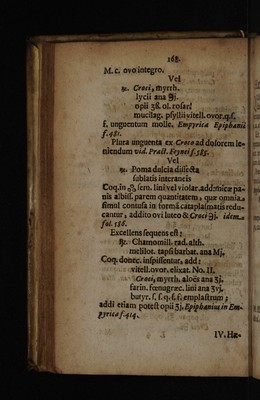 168.
M. c. ovo integro.
Vel
℞. Croci, myrrh.
lycii ana ℈j.
opii ℥ß. ol. rosar.
mucilag. psyllii vitell. ovor. q.s.
f. unguentum molle. Empyrica Epiphanii
f. 481.
Plura unguenta ex Croco ad dolorem le-
niendum vid. Pract. f. 585.
Vel
℞. Poma dulcia dissecta
sublatis interaneis
Coq. in sem. lini vel violar. add. micæ pa-
nis albiss. parem quantitatem, quæ omnia
simul contusa in formã cataplasmatis redu-
cantur, addito ovi luteo & Croci ℈j. idem
fol. 586.
Excellens sequens est:
℞. Chamomill. rad. alth.
melilot. tapsi barbat. ana Mj.
Coq. donec inspissentur, add:
vitell. ovor. elixat. No. II.
Croci, myrrh. aloës ana ℥j.
farin. fœnugræc. lini ana ℥vj.
butyr. s. f. q. s. f. emplastrum;
addi etiam potest opii ℥j. Epiphanius in Em-
pyrica f. 414.
IV. Hæ-